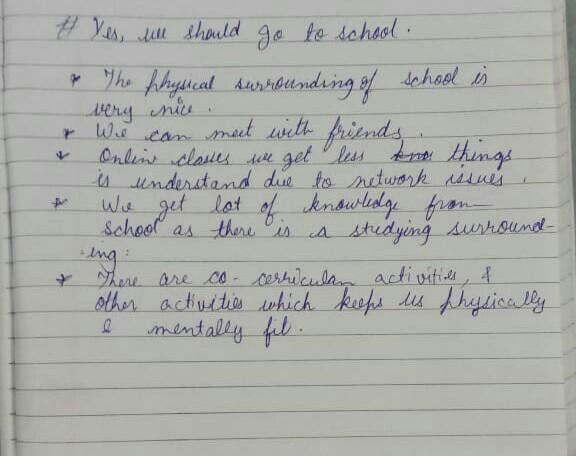 # Yes, we should go to school.
* The physical surrounding of school is
very nice.
* We can meet with friends.
* Online classes we get less things
is understand due to network issues.
* We get lot of knowledge from
school as there is a studying surround-
ing:
* There are co-cerriculan activities, &
other activities which keeps us physically
& mentally fit.